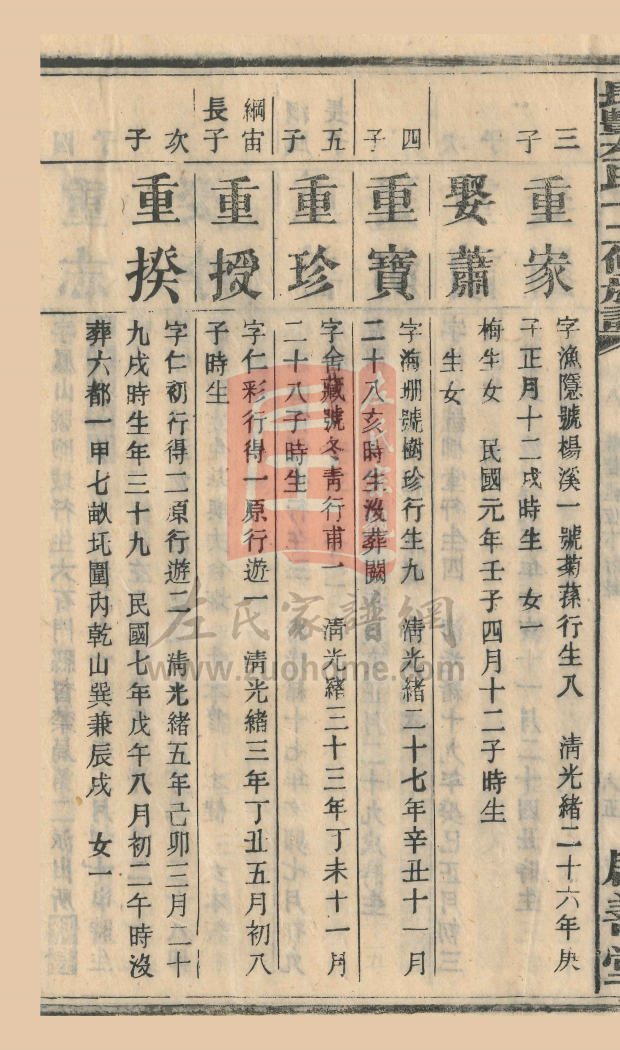 三子
重家
字漁隱號楊溪一號菊蓀行生八　清光緒二十六年庚
子正月十二戌時生　女一
娶蕭
梅生女　民國元年壬子四月十二子時生
生女
四子
重寶
字海珊號樹珍行生九　清光緒二十七年辛丑十一月
二十八亥時生沒葬闕
五子
重珍
字舍藏號冬青行甫一　清光緒三十三年丁未十一月
二十八子時生
綱宙長子
重授
字仁彩行得一原行遊一　清光緒三年丁丑五月初八
子時生
次子
重揆
字仁初行得二原行遊二　清光緒五年己卯三月二十
九戌時生年三十九　民國七年戊午八月初二午時沒
葬六都一甲七畝坵圍內乾山巽兼辰戌　女一
左氏家譜網
www.zuohome.com